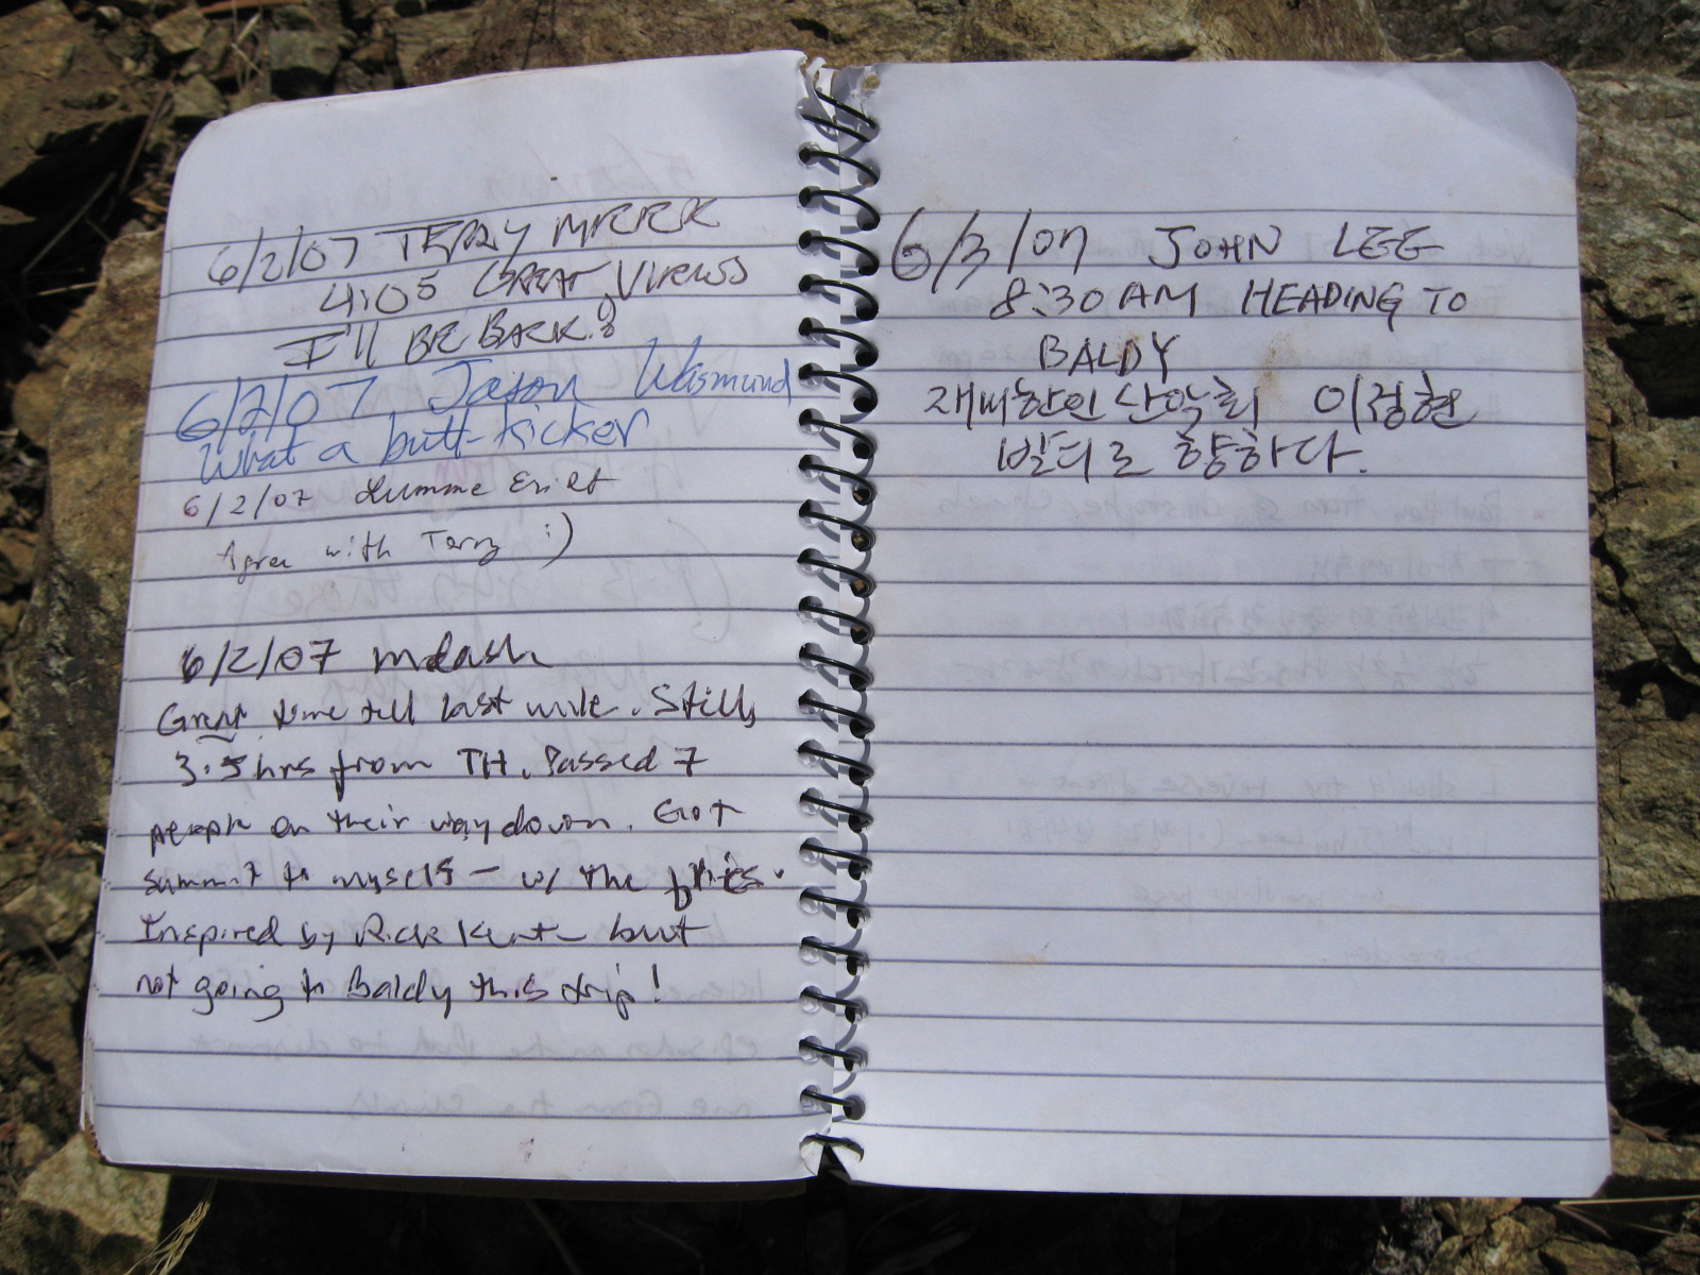 6/2/07 TERRY MEEER
4:05 GREAT VIEWS
I'll BE BACK!
6/2/07 Jason Wiesmund
What a butt-kicker
6/2/07
Agree with Terry :)
6/2/07 mdash
Great time till last mile. Still,
3.5 hrs from TH. Passed 7
people on their way down. Got
summit to myself – w/ the flies.
Inspired by Rick Kent – but
not going to Baldy this trip!
6/3/07 JOHN LEE
8:30 AM HEADING TO
BALDY
재미한인 산악회 이정현
발디로 향하다.